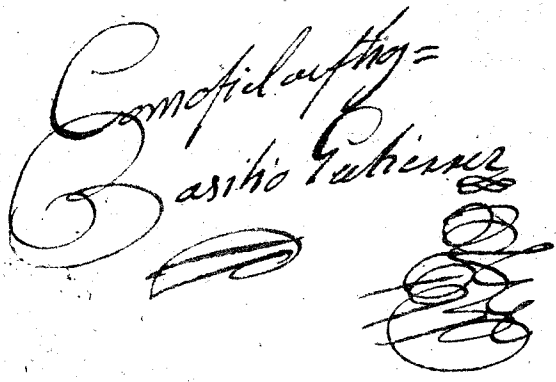 Como fiel
Basilio Gutierrez